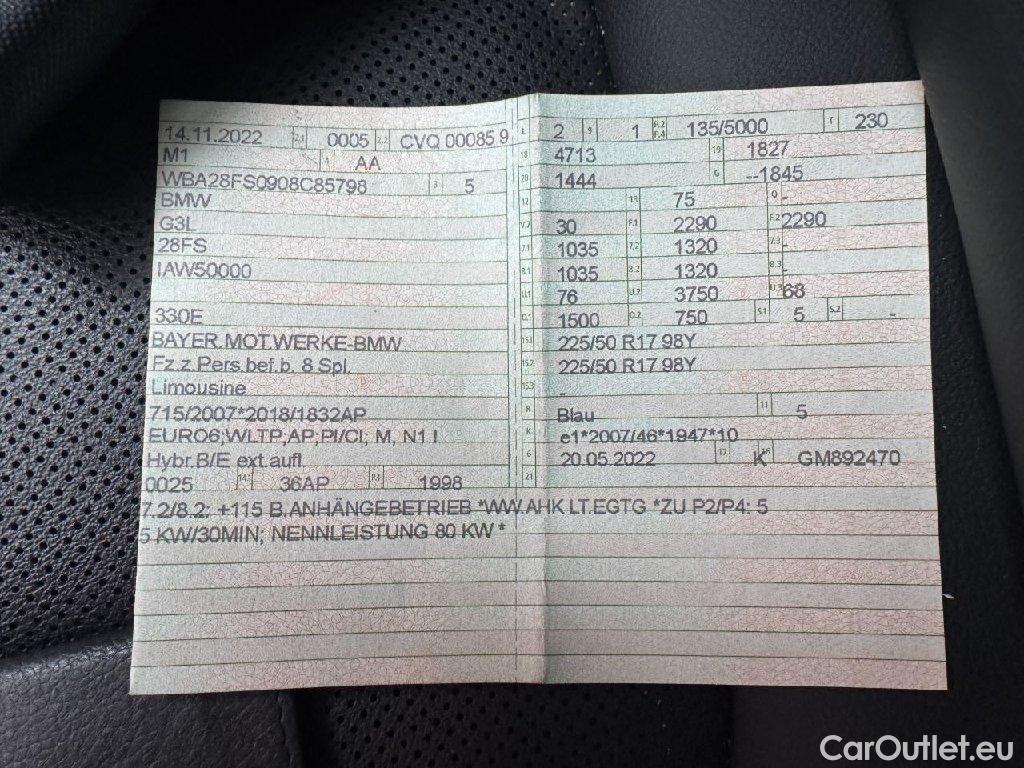 14.11.2022 2.1 0005 2.2 CVQ 00085 9
M1 AA
WBA28FS0908C85798 3 5
BMW
G3L
28FS
IAW50000
330E
BAYER.MOT.WERKE-BMW
Fz.z.Pers.bef.b. 8 Spl.
Limousine
715/2007*2018/1832AP
EURO6;WLTP,AP;PI/CI; M, N1 I
Hybr.B/E ext.aufl.
0025 14.1 36AP P.1 1998
L 2 9 1 P.2 P.4 135/5000 T 230
18 4713 19 1827
20 1444 G --1845
12 - 13 75 Q -
V.7 30 F.1 2290 F.2 2290
7.1 1035 7.2 1320 7.3 -
8.1 1035 8.2 1320 8.3 -
U.1 76 U.2 3750 U.3 68
O.1 1500 O.2 750 S.1 5 S.2 -
15.1 225/50 R17 98Y
15.2 225/50 R17 98Y
15.3 -
R Blau 11 5
K e1*2007/46*1947*10
6 20.05.2022 17 K 16 GM892470
21
7.2/8.2: +115 B.ANHÄNGEBETRIEB *WW.AHK LT.EGTG *ZU P2/P4: 5
5 KW/30MIN; NENNLEISTUNG 80 KW *
CarOutlet.eu